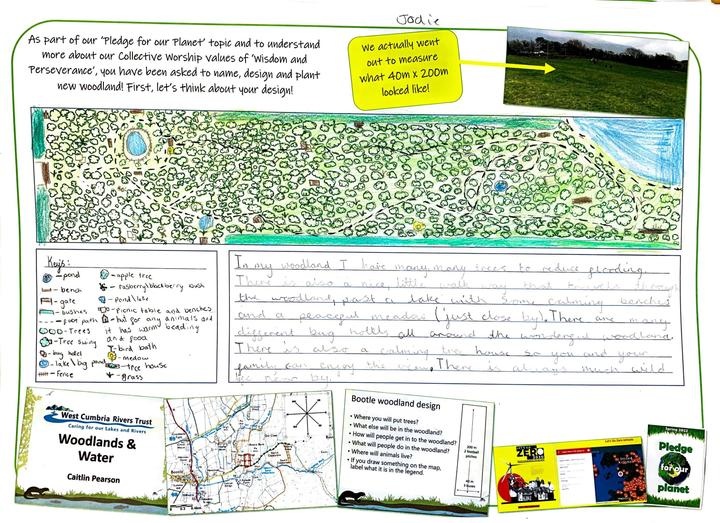 Jodie
As part of our ‘Pledge for our Planet’ topic and to understand
more about our Collective Worship values of ‘Wisdom and
Perseverance’, you have been asked to name, design and plant
new woodland! First, let’s think about your design!
We actually went
out to measure
what 40m x 200m
looked like!
Keys:
- pond
- bench
- gate
- bushes
- foot path
- Trees
- Tree swing
- bug hotel
- lake/big pond
- fence
- apple tree
- raspberry/blackberry bush
- pond/lake
- picnic table and benches
- hut for any animals and
it has warm beading
and food
- bird bath
- medow
- tree house
- grass
In my woodland I have many, many trees to reduce flording.
There is also a nice, little walk way that travels through
the woodland, past a lake with some calming benches
and a peaceful meadow (just close by). There are many
different bug hotels all around the wonderful woodland.
There is also a calming tree house so you and your
family can enjoy the view. There is always much wild
West Cumbria Rivers Trust
Caring for our Lakes and Rivers
Woodlands &
Water
Caitlin Pearson
Bootle
Bootle woodland design
• Where you will put trees?
• What else will be in the woodland?
• How will people get in to the woodland?
• What will people do in the woodland?
• Where will animals live?
• If you draw something on the map,
label what it is in the legend.
ZERO
Spring 2022
Pledge
for our
planet